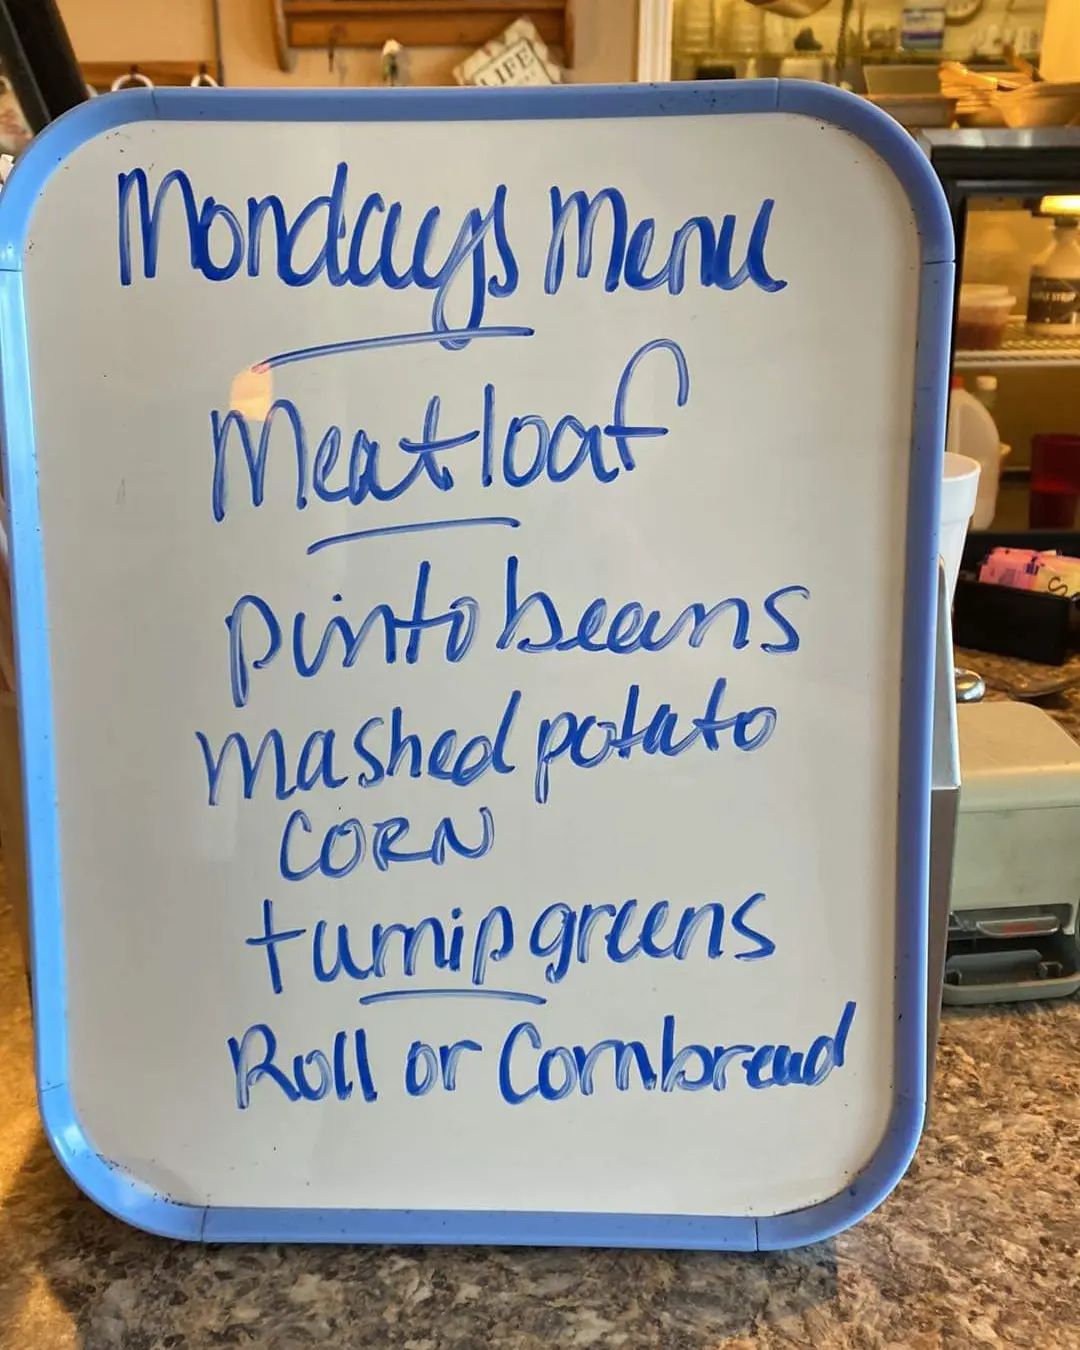 LIFE
Mondays Menu
Meatloaf
pinto beans
mashed potato
CORN
turnip greens
Roll or Cornbread